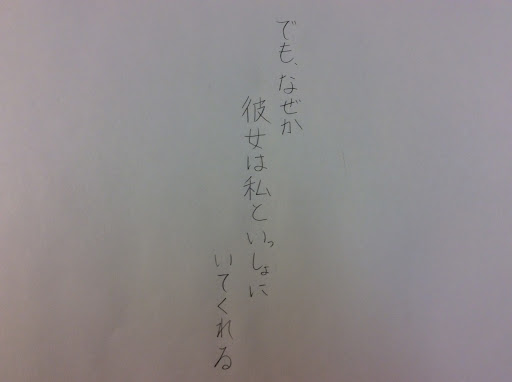 でも、なぜか
彼女は私といっしょに
いてくれる